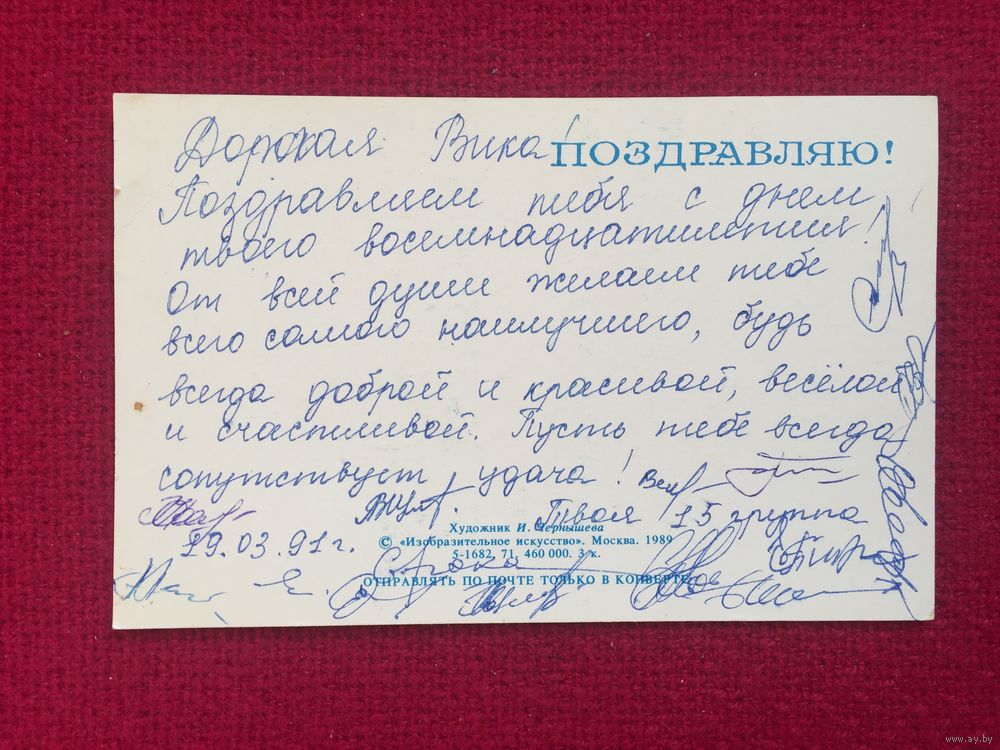 Дорогая Вика!
ПОЗДРАВЛЯЮ!
Поздравляем тебя с днем
твоего восемнадцатилетия!
От всей души желаем тебе
всего самого наилучшего, будь
всегда доброй и красивой, весёлой
и счастливой. Пусть тебе всегда
сопутствует удача!
Твоя 15 группа
29.03.91г.
Художник И. Чернышева
© «Изобразительное искусство». Москва. 1989
5-1682. 71. 460 000. 3 к.
ОТПРАВЛЯТЬ ПО ПОЧТЕ ТОЛЬКО В КОНВЕРТЕ
www.ay.by